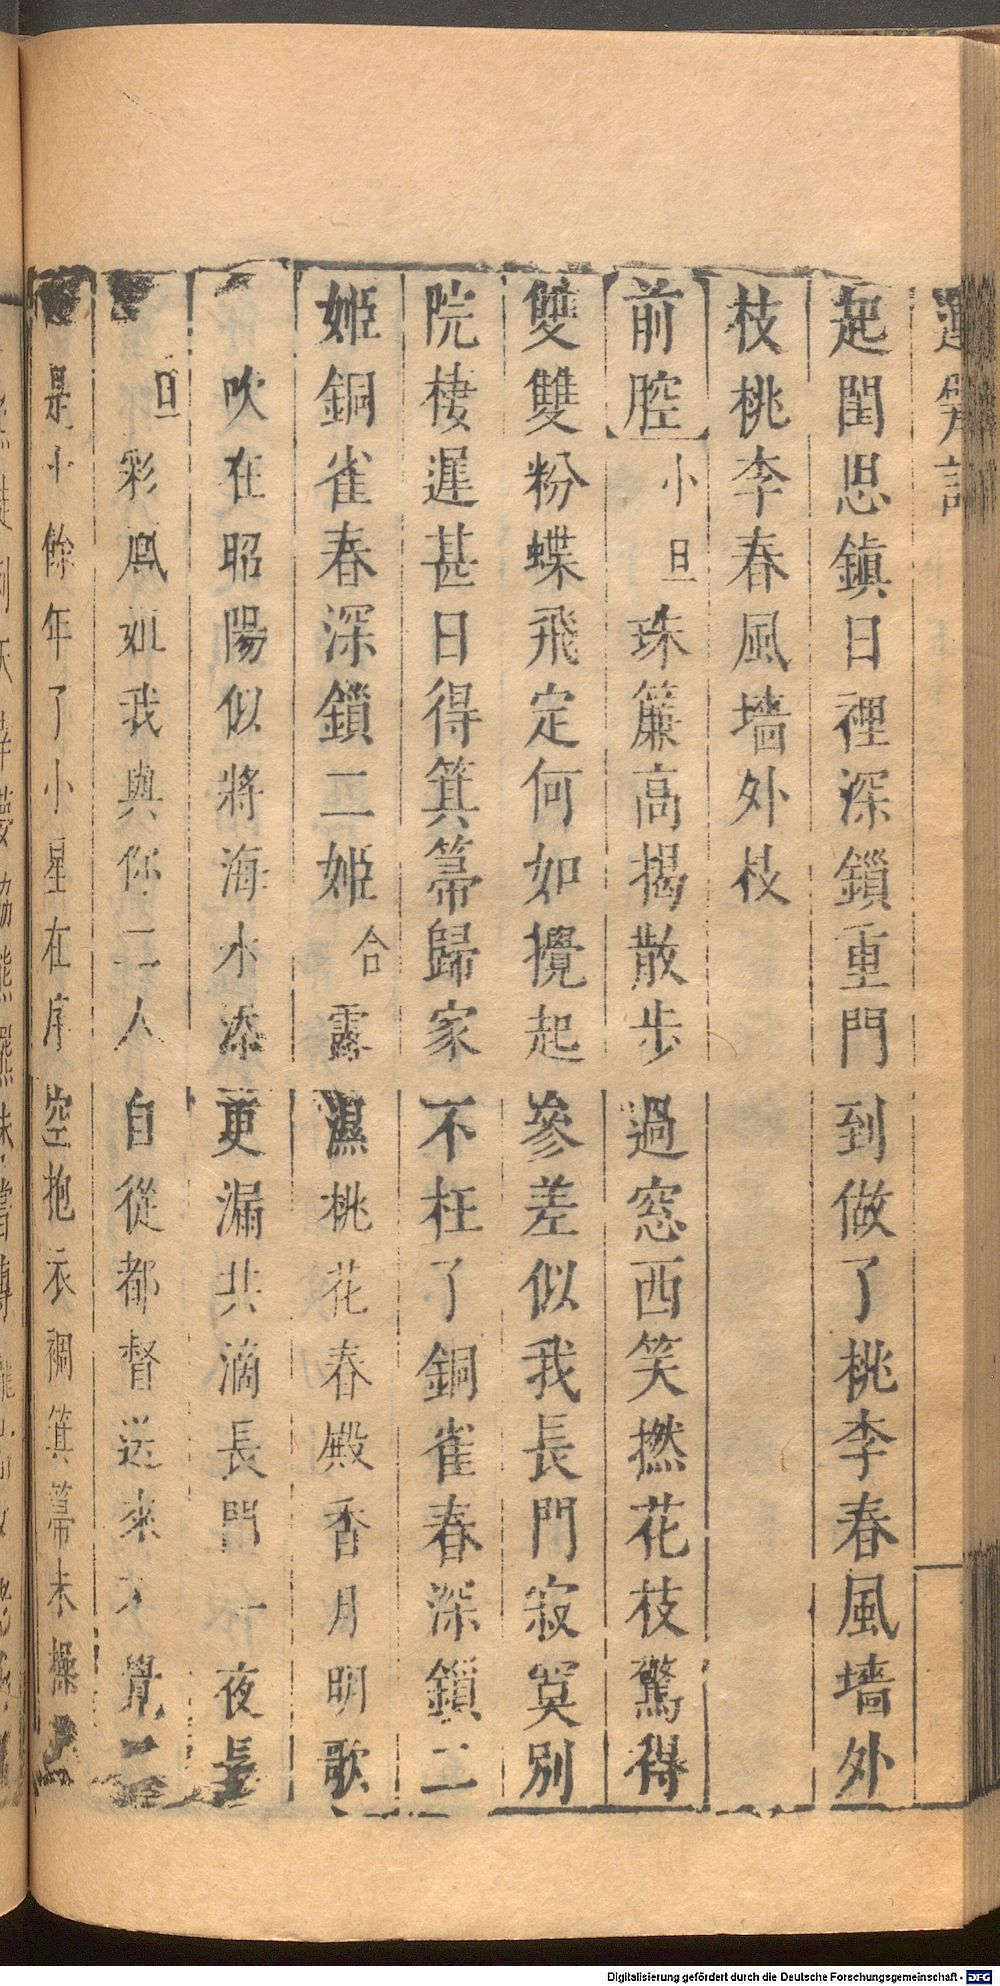 起閨思鎮日裡深鎖重門到做了桃李春風墻外
枝桃李春風墻外枝
前腔小旦珠簾高揭散步過窓西笑撚花枝驚得
雙雙粉蝶飛定何如攪起參差似我長門寂寞別
院棲遲甚日得箕箒歸家不枉了銅雀春深鎖二
姬銅雀春深鎖二姬合露濕桃花春殿香月明歌
吹在昭陽似將海水添更漏共滴長門一夜長
旦彩鳳姐我與你二人自從都督送來不覺二
是十餘年了小星在序空抱衣裯箕箒未操
Digitalisierung gefördert durch die Deutsche Forschungsgemeinschaft - DFG